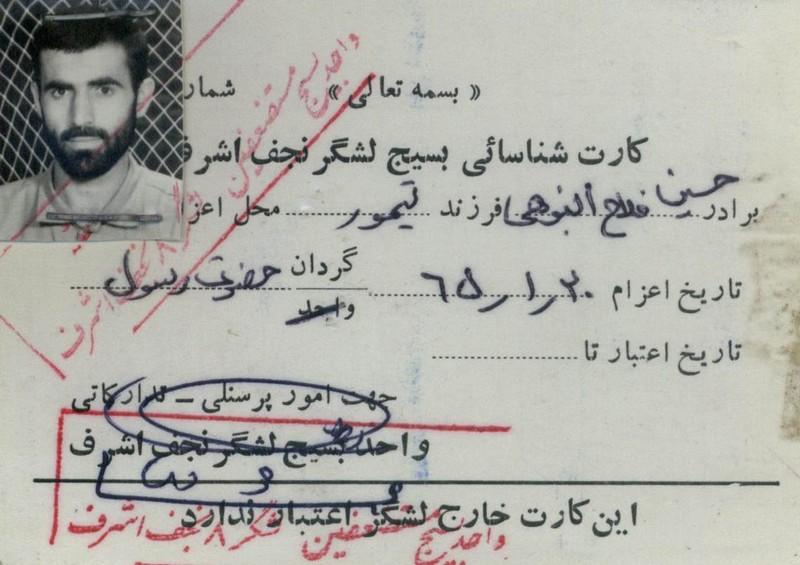 « بسمه تعالی » شمار
کارت شناسائی بسیج لشگر نجف اشرف
برادر حسین فلاح فرزند تیمور محل اعزا
تاریخ اعزام ۳۰ر۱ر۶۵ گردان حضرت رسول
واحد
تاریخ اعتبار تا
جهت امور پرسنلی ــ تدارکاتی
واحد بسیج لشگر نجف اشرف
این کارت خارج لشگر اعتبار ندارد
واحد بسیج مستضعفین لشگر ۸ نجف اشرف
واحد بسیج مستضعفین لشگر ۸ نجف اشرف